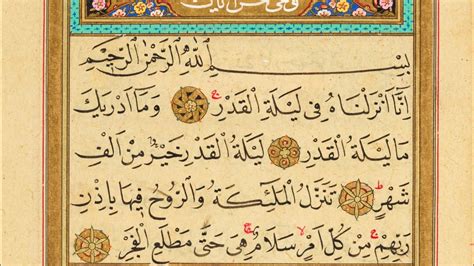 بِسْمِ اللّٰهِ الرَّحْمٰنِ الرَّحِيمِ
اِنَّٓا اَنْزَلْنَاهُ فِى لَيْلَةِ الْقَدْرِ ۝ وَمَٓا اَدْرٰيكَ
مَا لَيْلَةُ الْقَدْرِ ۝ لَيْلَةُ الْقَدْرِ خَيْرٌ مِنْ اَلْفِ
شَهْرٍ ۝ تَنَزَّلُ الْمَلٰٓئِكَةُ وَالرُّوحُ فِيهَا بِاِذْنِ
رَبِّهِمْ مِنْ كُلِّ اَمْرٍ سَلَامٌ هِىَ حَتّٰى مَطْلَعِ الْفَجْرِ